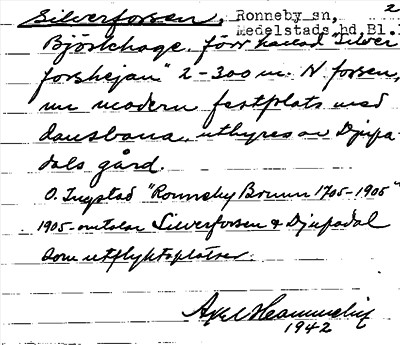 Silverforsen, Ronneby sn, 2
Medelstads hd, Bl.
Björkhage, förr kallad "Silver
forshejan" 2-300 m. N forsen,
nu modern festplats med
dansbana, uthyres av Djupa-
dals gård.
O. Ingstad "Ronneby Brunn 1705-1905"
1905 omtalar Silverforsen & Djupadal
som utflyktsplatser.
Axel
1942